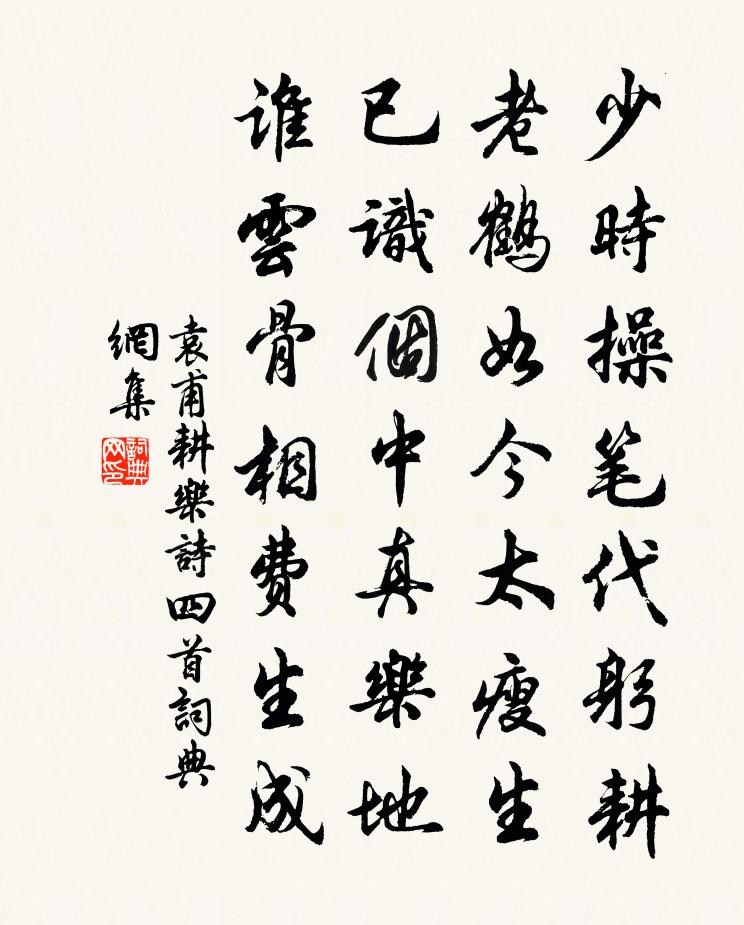 少時操笔代躬耕
老鶴如今太瘦生
已識個中真樂地
誰雲骨相費生成
袁甫耕樂詩四首詞典
網集
詞典網印